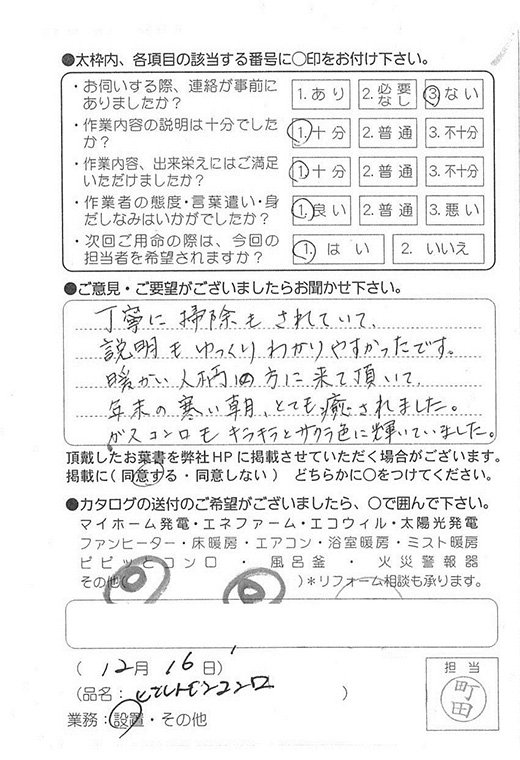 ●太枠内、各項目の該当する番号に○印をお付け下さい。
・お伺いする際、連絡が事前にありましたか? 1.あり 2.必要なし 3.ない
・作業内容の説明は十分でしたか? 1.十分 2.普通 3.不十分
・作業内容、出来栄えにはご満足いただけましたか? 1.十分 2.普通 3.不十分
・作業者の態度・言葉遣い・身だしなみはいかがでしたか? 1.良い 2.普通 3.悪い
・次回ご用命の際は、今回の担当者を希望されますか? 1.はい 2.いいえ
●ご意見・ご要望がございましたらお聞かせ下さい。
丁寧に掃除もされていて、
説明もゆっくりわかりやすかったです。
暖かい人柄の方に来て頂いて、
年末の寒い朝、とても癒されました。
ガスコンロもキラキラとサクラ色に輝いていました。
頂戴したお葉書を弊社HPに掲載させていただく場合がございます。
掲載に(同意する・同意しない) どちらかに○をつけてください。
●カタログの送付のご希望がございましたら、○で囲んで下さい。
マイホーム発電・エネファーム・エコウィル・太陽光発電
ファンヒーター・床暖房・エアコン・浴室暖房・ミスト暖房
ピピッとコンロ・風呂釜・火災警報器
その他( )*リフォーム相談も承ります。
(12月16日)
(品名:ビルトインコンロ)
業務:設置・その他
担当
町田